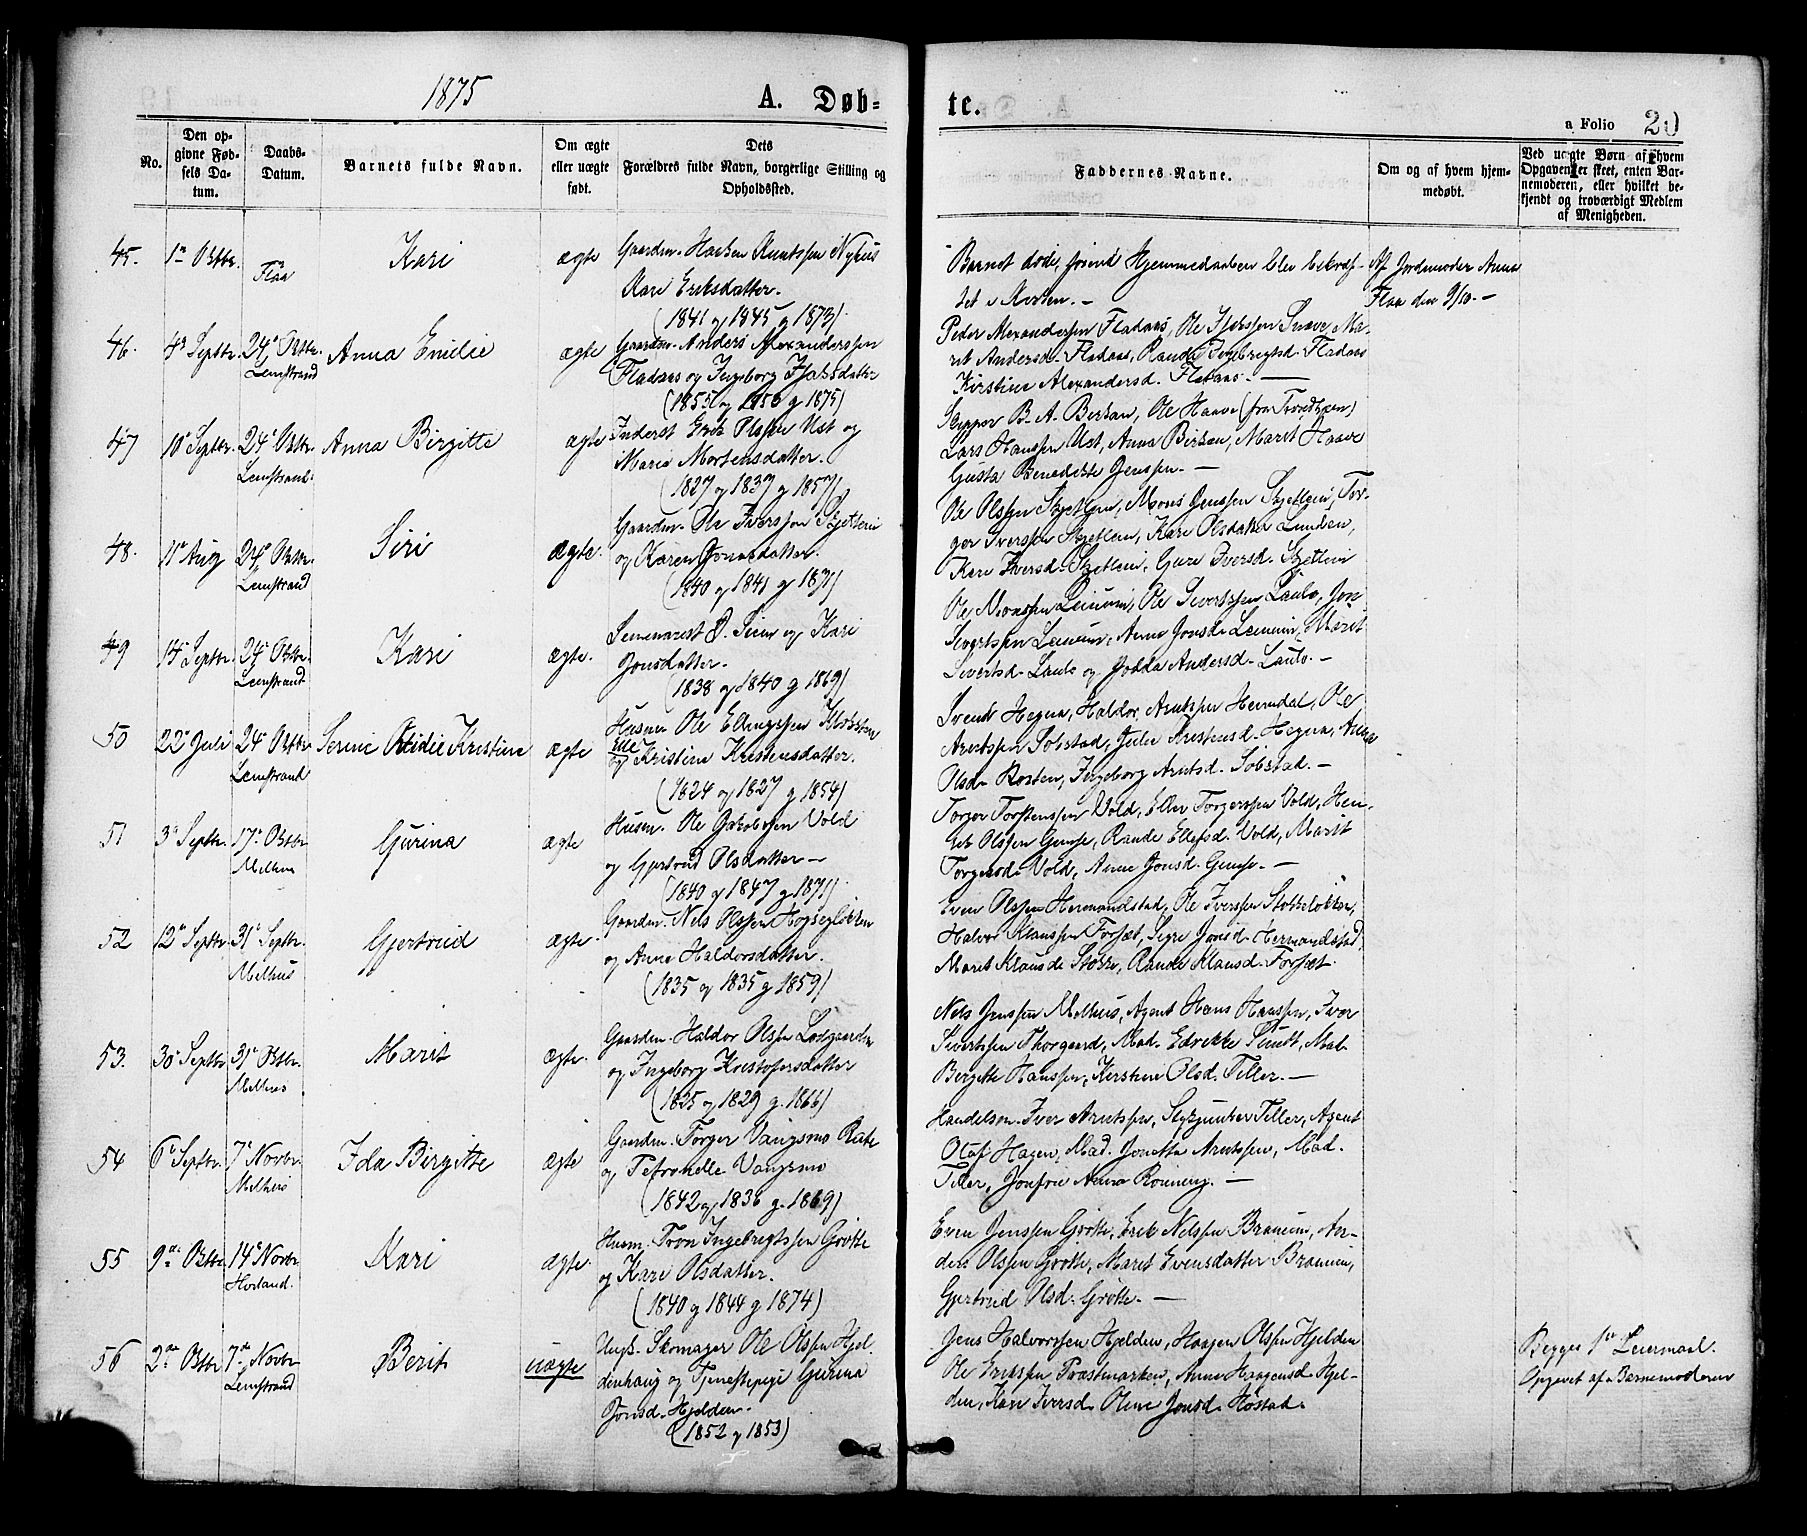 1875
A. Døb-
te.
a Folio 20
No.
Den op-
givne Fød-
sels Da-
tum.
Daabs-
Datum.
Barnets fulde Navn.
Om ægte
eller uægte
født.
Dets
Forældres fulde Navn, borgerlige Stilling og
Opholdssted.
Faddernes Navne.
Om og af hvem hjem-
medøbt.
Ved uægte Børn af hvem
Opgaven er skeet, enten Bar-
nemoderen, eller hvilket be-
kjendt og troværdigt Medlem
af Menigheden.
45. 1ste Oktbr. Flaa Kari ægte
Gaardm. Knutssen Nyhus
Kari Eriksdatter.
(1841 og 1845 g 1873)
Barnet døde, Hjemmedaaben blev bekræf-
tet i Kirken. –
Af Jordemoder Anna
Flaa den 9/10. –
46. 4de Septbr. 24de Oktbr. Lenstrand Anna Emilie ægte
Gaardm. Anders Alexanderssen
Fladaas og Ingeborg
(1855 og 1850 g 1875)
Peder Alexanderssen Fladaas, Ole Ma-
rit Andersd. Fladaas, Randi Ingebrigtsd. Fladaas
Kirstine Alexandersd. Fladaas. –
47 10de Septbr. 24de Oktbr. Lenstrand. Anna Birgitte ægte
Inderst Erik Olssen Ust og
Marit Mortensdatter.
(1827 og 1837 g 1857)
Skipper B. A. Ole Haave (fra Trondhjem)
Lars Hanssen Ust, Anna Marit Haave
Gusta Benedikte Jenssen. –
48. 11te Aug 24de Oktbr. Lenstrand Siri ægte.
Gaardm. Ole Iverssen Skjetlein
og Karen Jonasdatter.
(1840 og 1841 g 1871)
Ole Olssen Skjetlein, Mons Jenssen Skjetlein, Tor-
ger Iverssen Skjetlein, Kari Olsdatter Lunden,
Kari Iversd. Skjetlein, Guri Iversd. Skjetlein
49 14de Septbr. 24de Oktbr. Lenstrand Kari ægte.
Seminarist O. Siem og Kari
Jonsdatter.
(1838 og 1840 g 1869)
Ole Monssen Leinum, Ole Sivertssen Laulo, Jon
Sivertssen Leinum, Anne Jonsd. Leinum, Marit
Sivertsd. Laulo og Jodda Andersd. Laulo. –
50 22de Juli 24de Oktbr. Lenstrand Serine Kristine ægte
Husm. Ole Ellingssen
og Kristine Kristensdatter.
(1824 og 1827 g 1854)
Svend Hegna, Haldor Arntssen Heimdal, Ole
Arntssen Sobstad, Julie Kristensd. Hegna, Anne
Olsd. Rosten, Ingeborg Arntsd. Sobstad. –
51 3de Septbr. 17de Oktbr. Melhus Gjurina ægte
Husm. Ole Jakobssen Vold
og Gjertrud Olsdatter –
(1840 og 1847 g 1871)
Torger Torstenssen Vold, Ellev Torgerssen Vold, Hen-
rik Olssen Gimse, Randi Ellefsd. Vold, Marit
Torgersd. Vold, Anne Jonsd. Gimse. –
52 12te Septbr. 31te Septbr. Melhus Gjertrud ægte.
Gaardm. Nils Olssen Høgsegløkken
og Anne Haldorsdatter.
(1835 og 1835 g 1859)
Even Olssen Hermandstad, Ole Iverssen Stokkeløkken,
Halvor Klaussen Forset, Sigri Jonsd. Hermandstad,
Marit Klausd. Stokke, Randi Klausd. Forset.
53. 30te Septbr. 31te Oktbr. Melhus Marit ægte.
Gaardm. Haldor Olssen Losgaarden
og Ingeborg Kristofersdatter
(1825 og 1829 g. 1866)
Nils Jenssen Melhus, Agent Hans Hanssen, Ivar
Sivertssen Thorgaard, Mad. Edvikke Sundt, Mad.
Birgitte Hanssen, Kirstine Olsd. Teller. –
54 6te Septbr. 7de Novbr. Melhus Ida Birgitte ægte
Gaardm. Torger Vangsmo
og Petronelle Vangsmo
(1842 og 1836 g. 1869)
Handelsm. Iver Arntssen, Teller, Agent
Olaf Hagen, Mad. Jonetta Arntssen, Mad.
Teller, Jomfru Anna Rønning. –
55 9de Oktbr. 14de Novbr. Horland. Kari ægte.
Husm. Tron Ingebrigtssen Grøtte
og Kari Olsdatter.
(1840 og 1844 g 1874)
Even Jenssen Grøtte, Erik Nilssen Bruneim, An-
ders Olssen Grøtte, Marit Evensdatter
Gjertrud Olsd. Grøtte. –
56 2den Oktbr. 7de Novbr Lenstrand Berit uægte
Ungk. Skomager Ole Olssen Hjel-
denhaug og Tjenestepige Gjurina
Jonsd. Hjelden.
(1852 og 1853)
Jens Halvorssen Hjelden, Haagen Olssen Hjelden
Ole Erikssen Præstmarken, Anne Haagensd. Hjel-
den, Kari Iversd. Oline Jonsd. Hostad.
Begges 1ste Leiermaal.
Opgivet af Barnemoderen